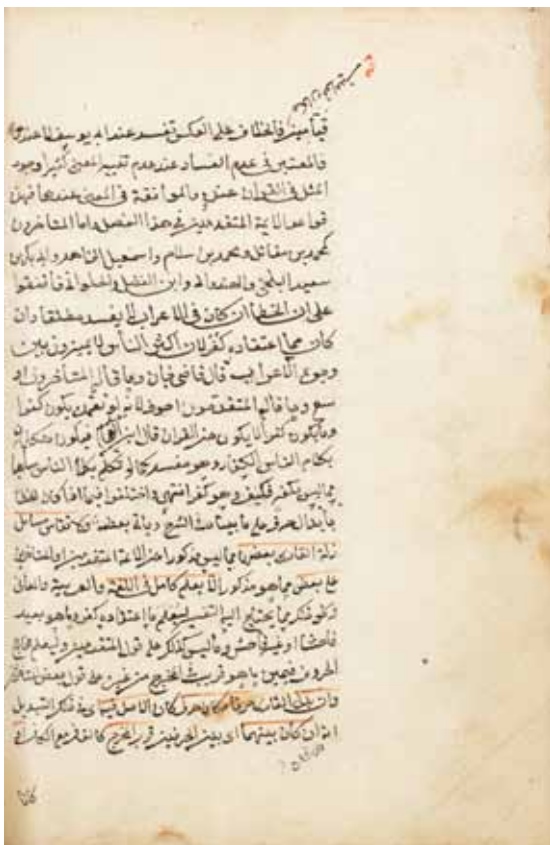 قيامين فالخلاف على العكس تفسد عند ابي يوسف لا عندهما
فالمعتبر في عدم الفساد عند عدم تغيير المعنى كثيرا وجود
المثل في القران عنده والموافقة في المعنى عندهما فهذه
قواعد الايمة المتقدمين في هذا الفصل واما المتاخرون
كمحمد بن مقاتل ومحمد بن سلام واسمعيل الزاهد وابي بكر بن
سعيد البلخي والهندواني وابن الفضل والحلواني فاتفقوا
على ان الخطا ان كان في الاعراب لا يفسد مطلقا وان
كان مما اعتقاده كفر لان اكثر الناس لا يميزون بين
وجوه الاعراب قال قاضي خان وما قاله المتاخرون او
سع وما قاله المتقدمون احوط لانه لو تعمد يكون كفرا
وما يكون كفرا لا يكون من القران قال ابن الهمام فيكون متكلما
بكلام الناس الكفار وهو مفسد كما لو تكلم بكلام الناس ساهيا
مما ليس بكفر فكيف وهو كفر انتهى واختلفوا فيما اذا كان الخطا
بابدال حرف على ما بيناه في الشرح ولا تقاس مسائل
زلة القاري بعضها مما ليس مذكورا عن الايمة المتقدمين والمتاخرين
على بعض مما هو مذكور الا بعلم كامل في اللغة والعربية والمعاني
فاحشا او غير فاحش وما ليس كذلك على قول المتقدمين وليعلم مخارج
الحروف فيميز ما هو قريب المخرج من غيره على قول بعض
ان كان بينهما اي بين الحرفين قرب المخرج كالقاف مع الكاف